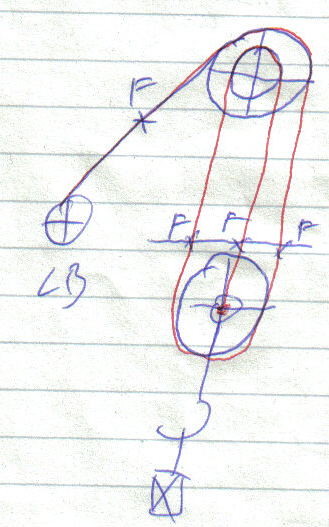 F
F F F
LB